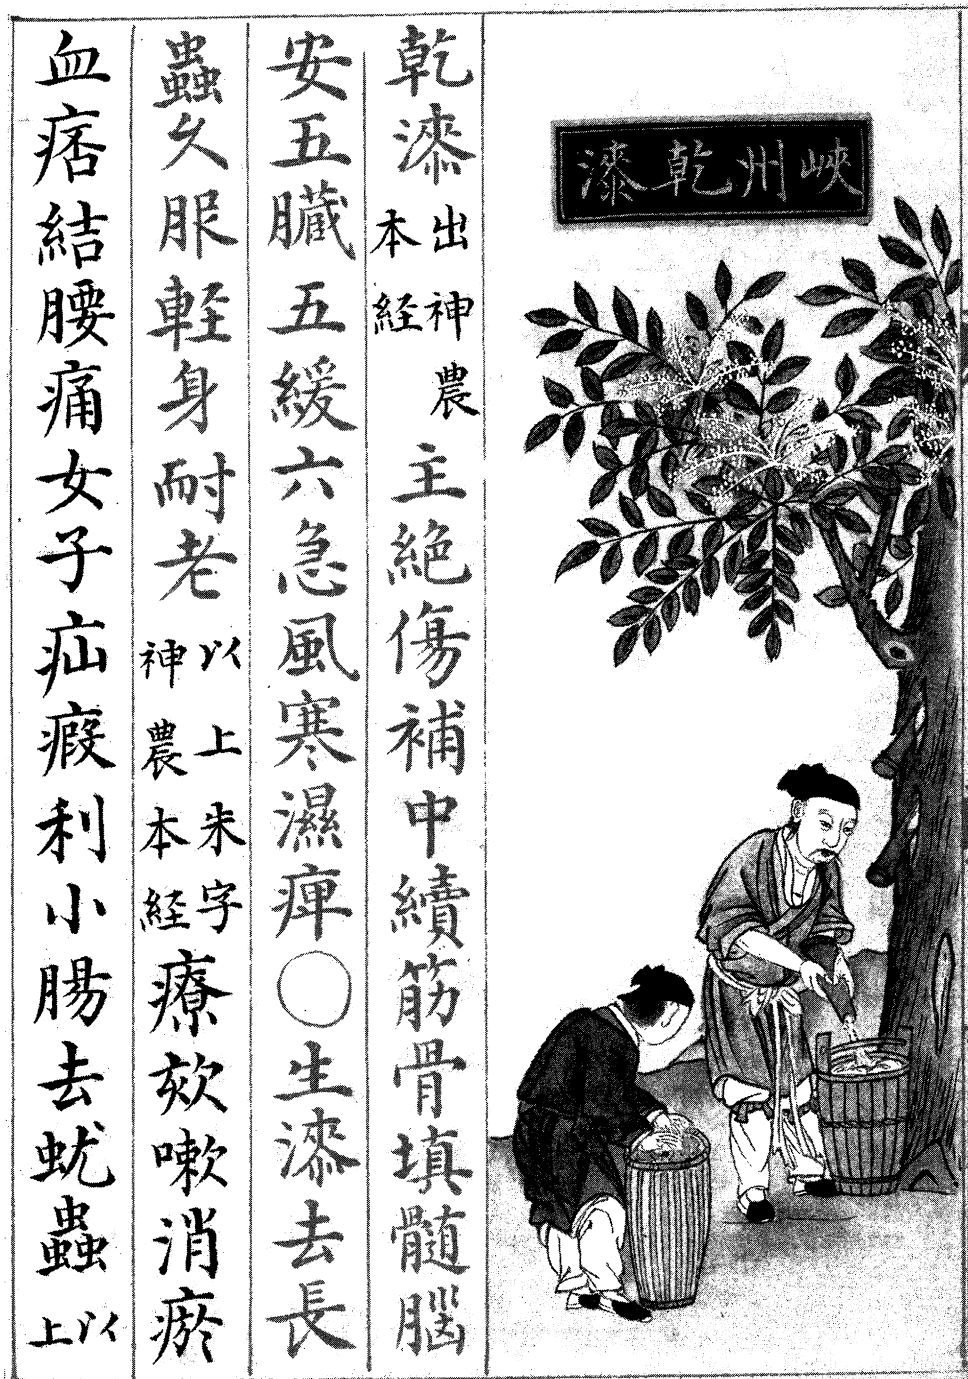 峽州乾漆
乾漆出神農本経主絶傷補中續筋骨填髓腦
安五臟五緩六急風寒濕痺○生漆去長
蟲久服軽身耐老以上朱字神農本経療欬嗽消瘀
血痞結腰痛女子疝瘕利小腸去蚘蟲以上